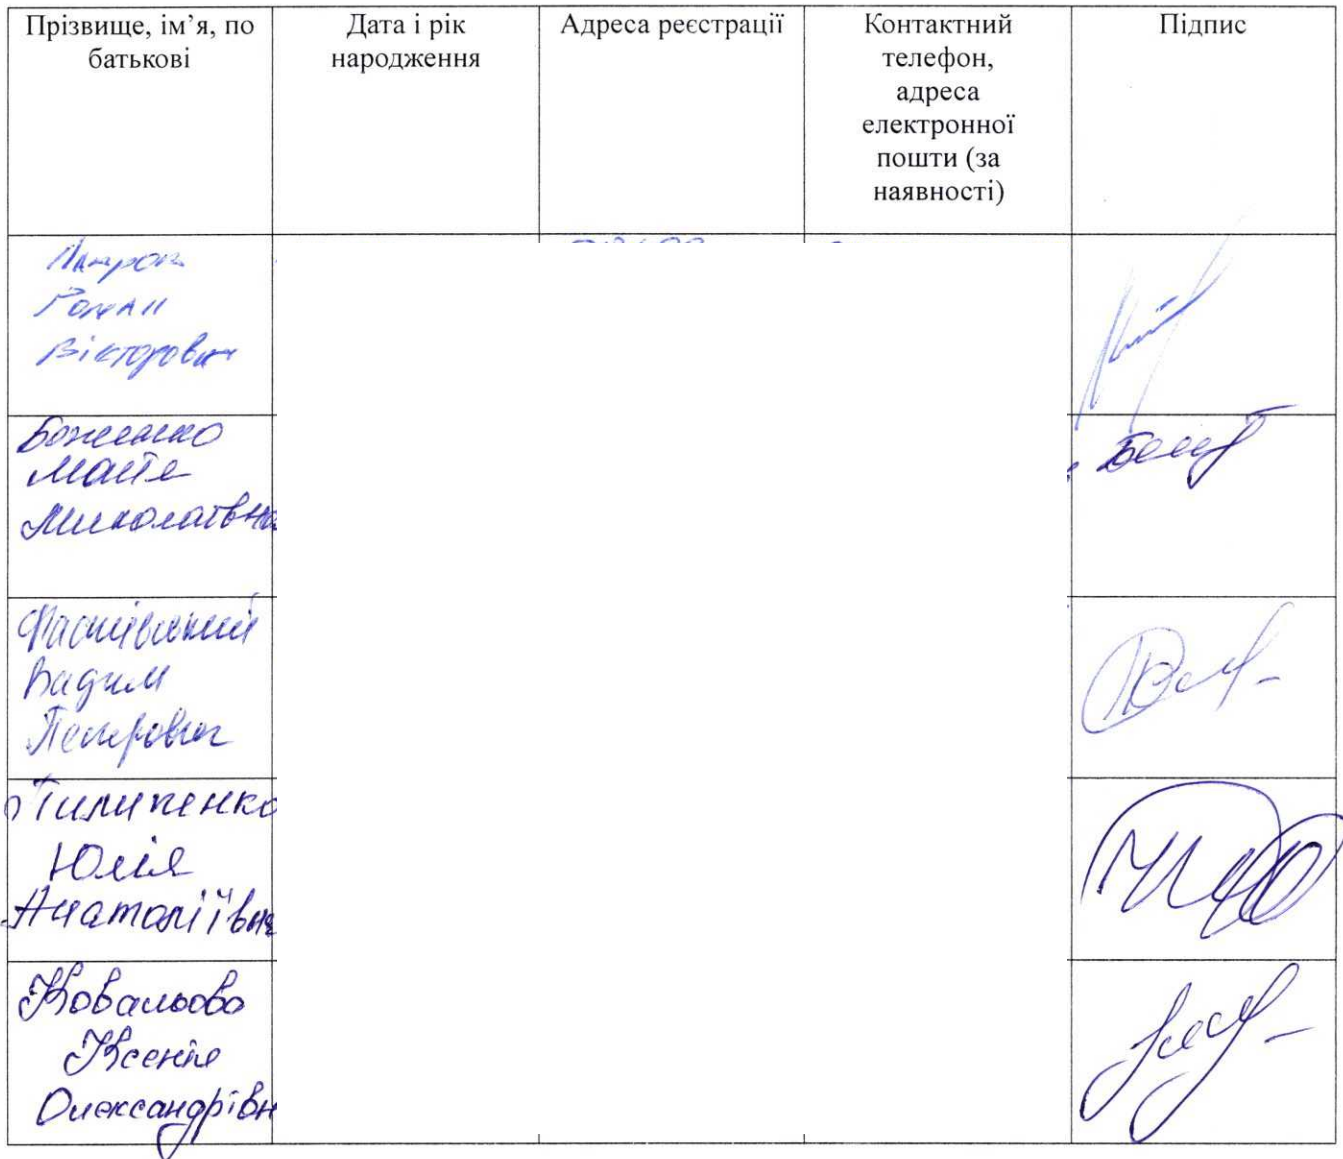 Прізвище, ім’я, по
батькові
Дата і рік
народження
Адреса реєстрації
Контактний
телефон,
адреса
електронної
пошти (за
наявності)
Підпис
Роман
Вікторович
Боженко
Майя
Миколаївна
Вадим
Петрович
Пилипенко
Юлія
Анатоліївна
Ковальова
Ксенія
Олександрівн